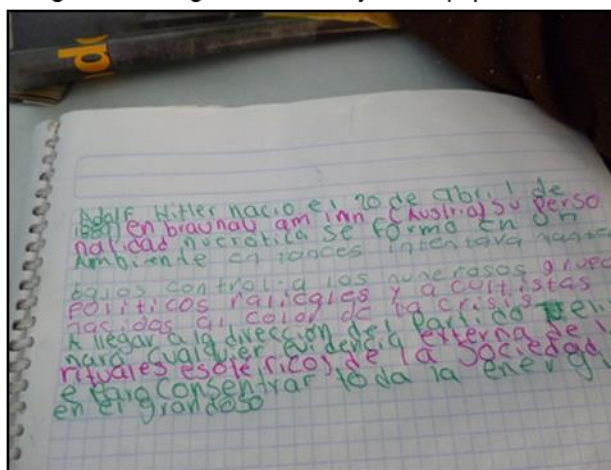 Adolf Hitler nacio el 20 de abril de
1889 en braunau am inn (Austria) su perso
nalidad nucrotica se formo en un
Ambiente entonces intentara
bajos control a los numerosos grupo
politicos ralicales y a cultistas
nacidos al color de la crisis
A llegar a la dirección del partido eli
nara cualquier evidencia externa de
rituales esotericos de la Sociedad
e para consentrar toda la energi
en el grandoso